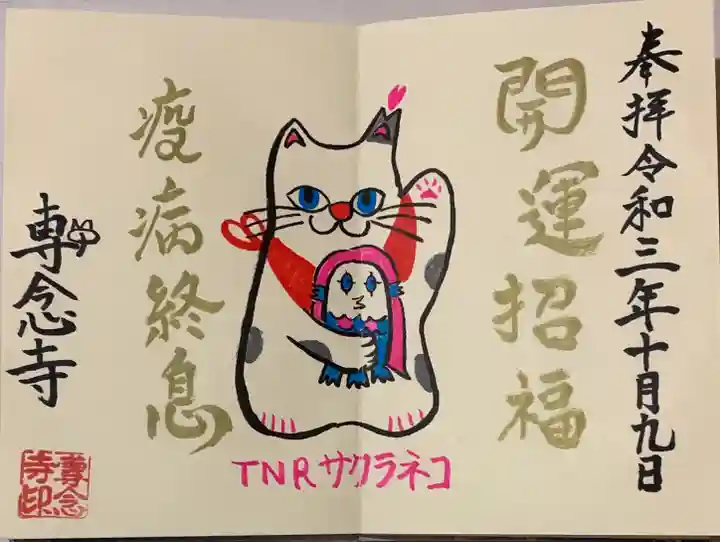 奉拝令和三年十月九日
開運招福
疫病終息
専念寺
TNRサクラネコ
専念寺印